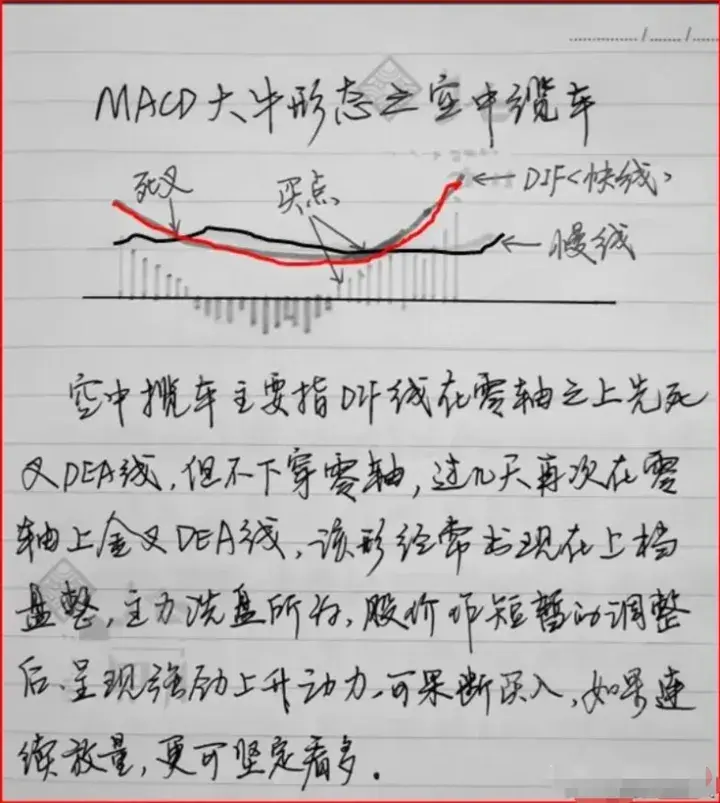 MACD大牛形态之空中缆车
死叉
买点
DIF<快线>
慢线
空中揽车主要指DIF线在零轴之上先死
叉DEA线,但不下穿零轴,过几天再次在零
轴上金叉DEA线,该形经常出现在上档
盘整,主力洗盘所为,股价作短暂的调整
后、呈现强劲上升动力、可果断买入,如果连
续放量,更可坚定看多.